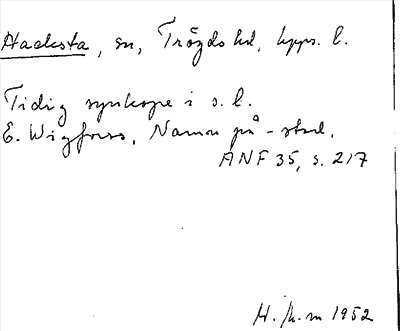 Haaksta, sn, Trögds hd, Upps. l.
Tidig synkope i s. l.
E. Wigforss, Namn på -stad.
ANF 35, s. 217
H. 1952